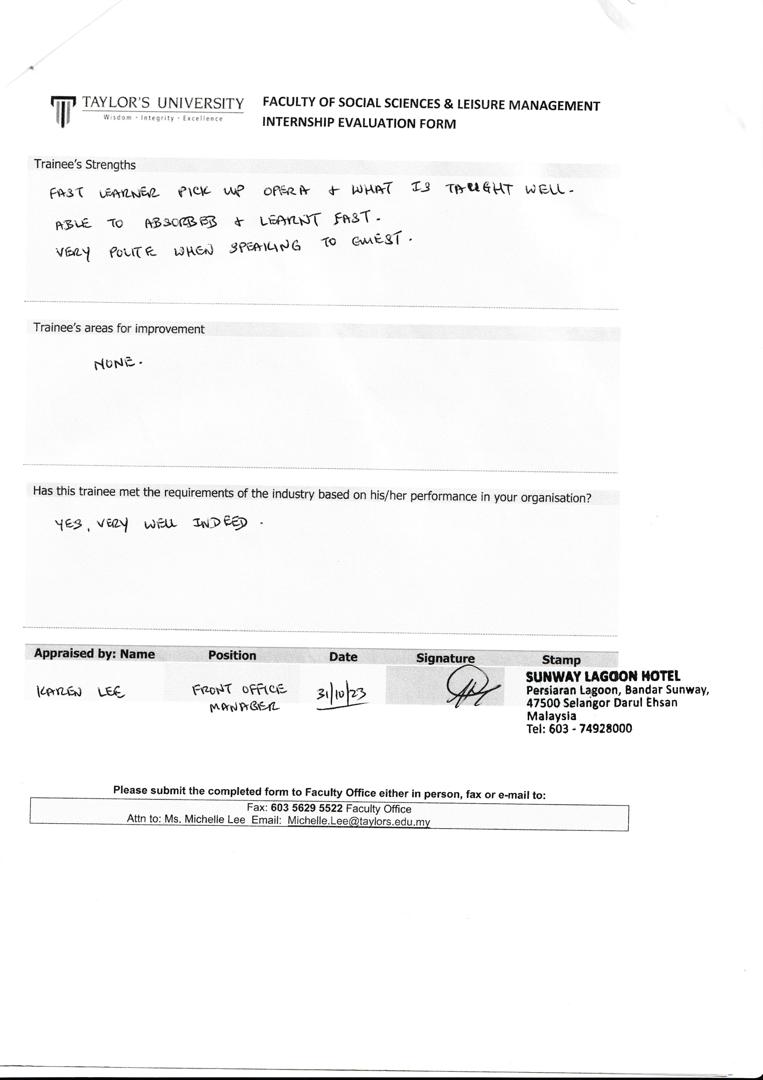 TAYLOR'S UNIVERSITY
Wisdom · Integrity · Excellence
FACULTY OF SOCIAL SCIENCES & LEISURE MANAGEMENT
INTERNSHIP EVALUATION FORM
Trainee's Strengths
FAST LEARNER PICK UP OPERA & WHAT IS TAUGHT WELL.
ABLE TO ABSORBED & LEARNT FAST.
VERY POLITE WHEN SPEAKING TO GUEST.
Trainee's areas for improvement
NONE.
Has this trainee met the requirements of the industry based on his/her performance in your organisation?
YES, VERY WELL INDEED.
Appraised by: Name Position Date Signature Stamp
KAREN LEE FRONT OFFICE MANAGER 31/10/23
SUNWAY LAGOON HOTEL
Persiaran Lagoon, Bandar Sunway,
47500 Selangor Darul Ehsan
Malaysia
Tel: 603 - 74928000
Please submit the completed form to Faculty Office either in person, fax or e-mail to:
Fax: 603 5629 5522 Faculty Office
Attn to: Ms. Michelle Lee Email: Michelle.Lee@taylors.edu.my